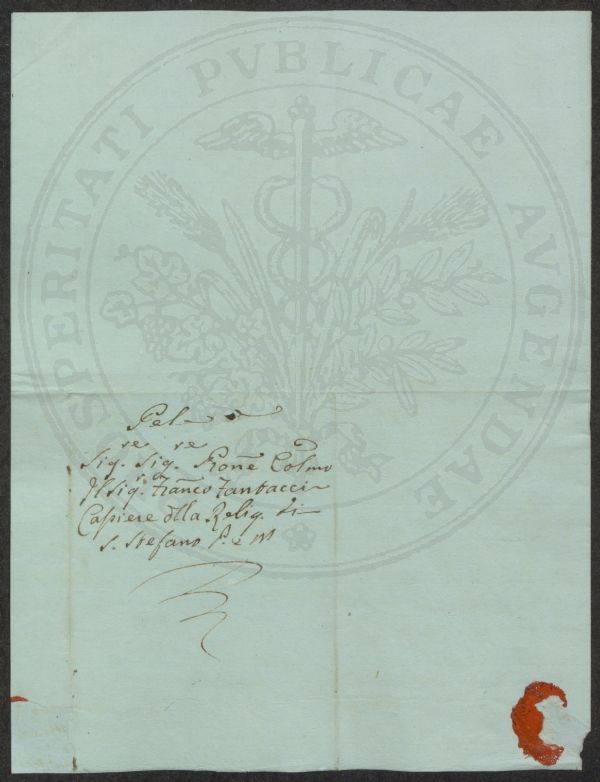 PROSPERITATI PVBLICAE AVGENDAE
Pel
re re
Sig. Sig. Prone Colmo
Il Sig.re Franco Fantacci
Casiere dlla Relig. di
S. Stefano P. e M